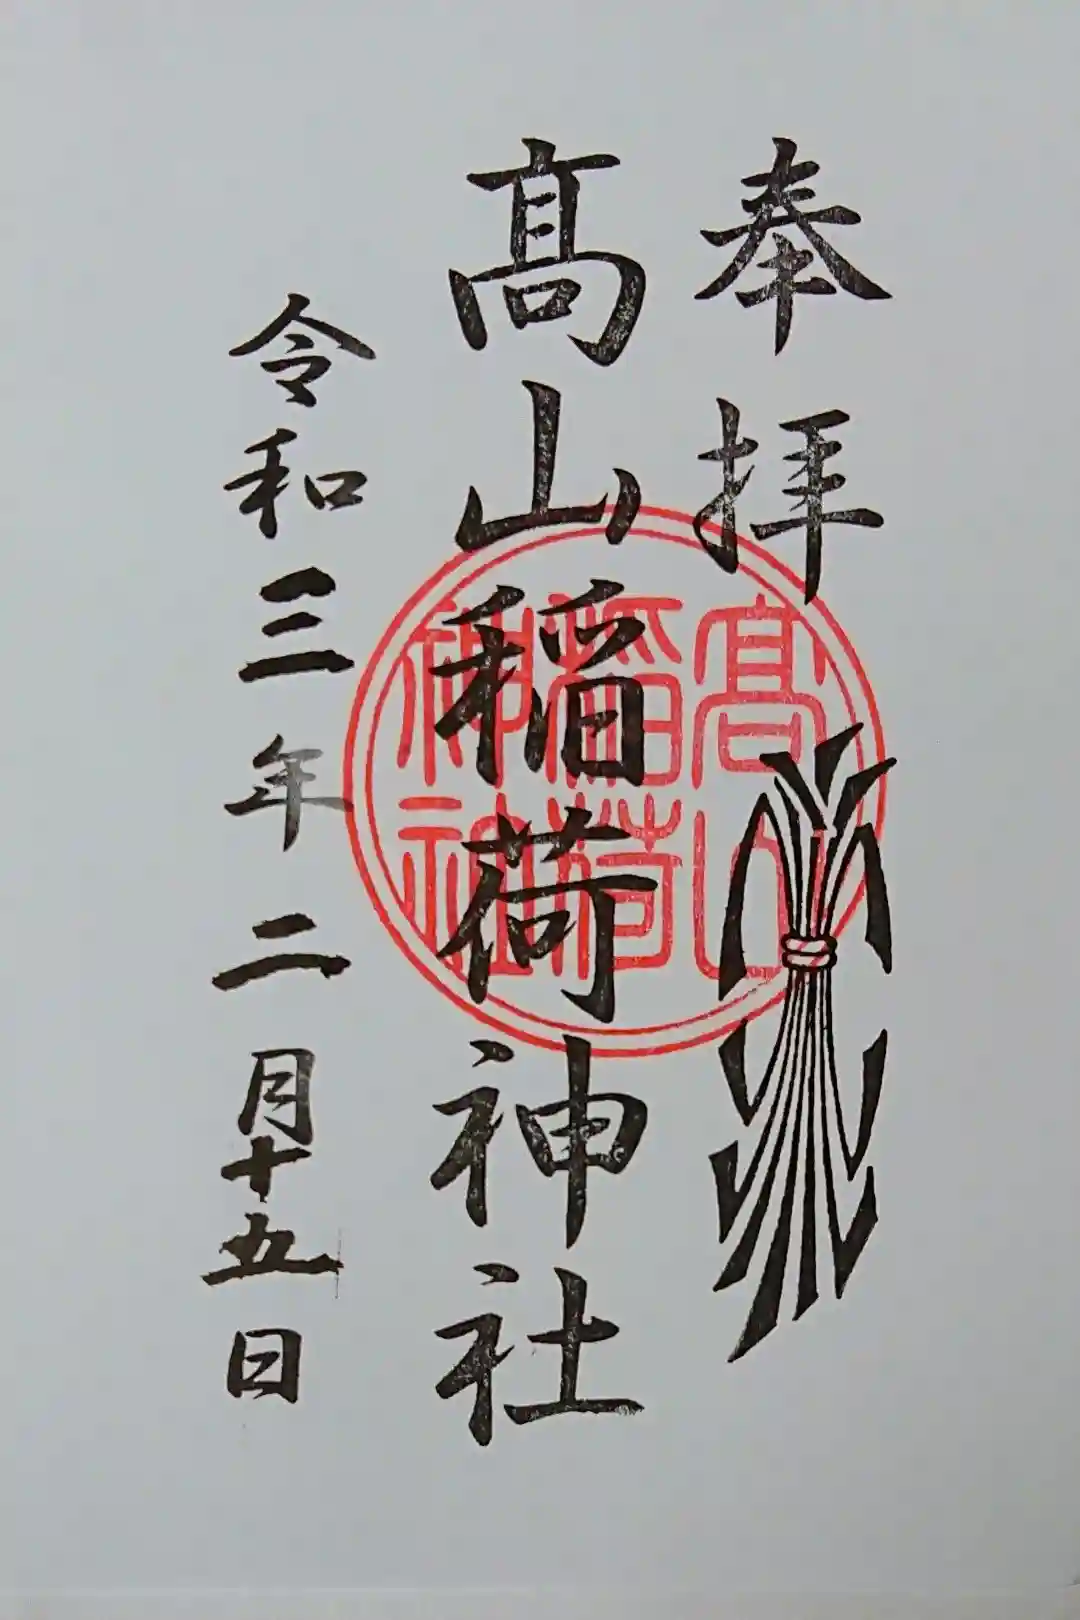 奉拝
髙山稲荷神社
髙山
稲荷
神社
令和三年二月十五日